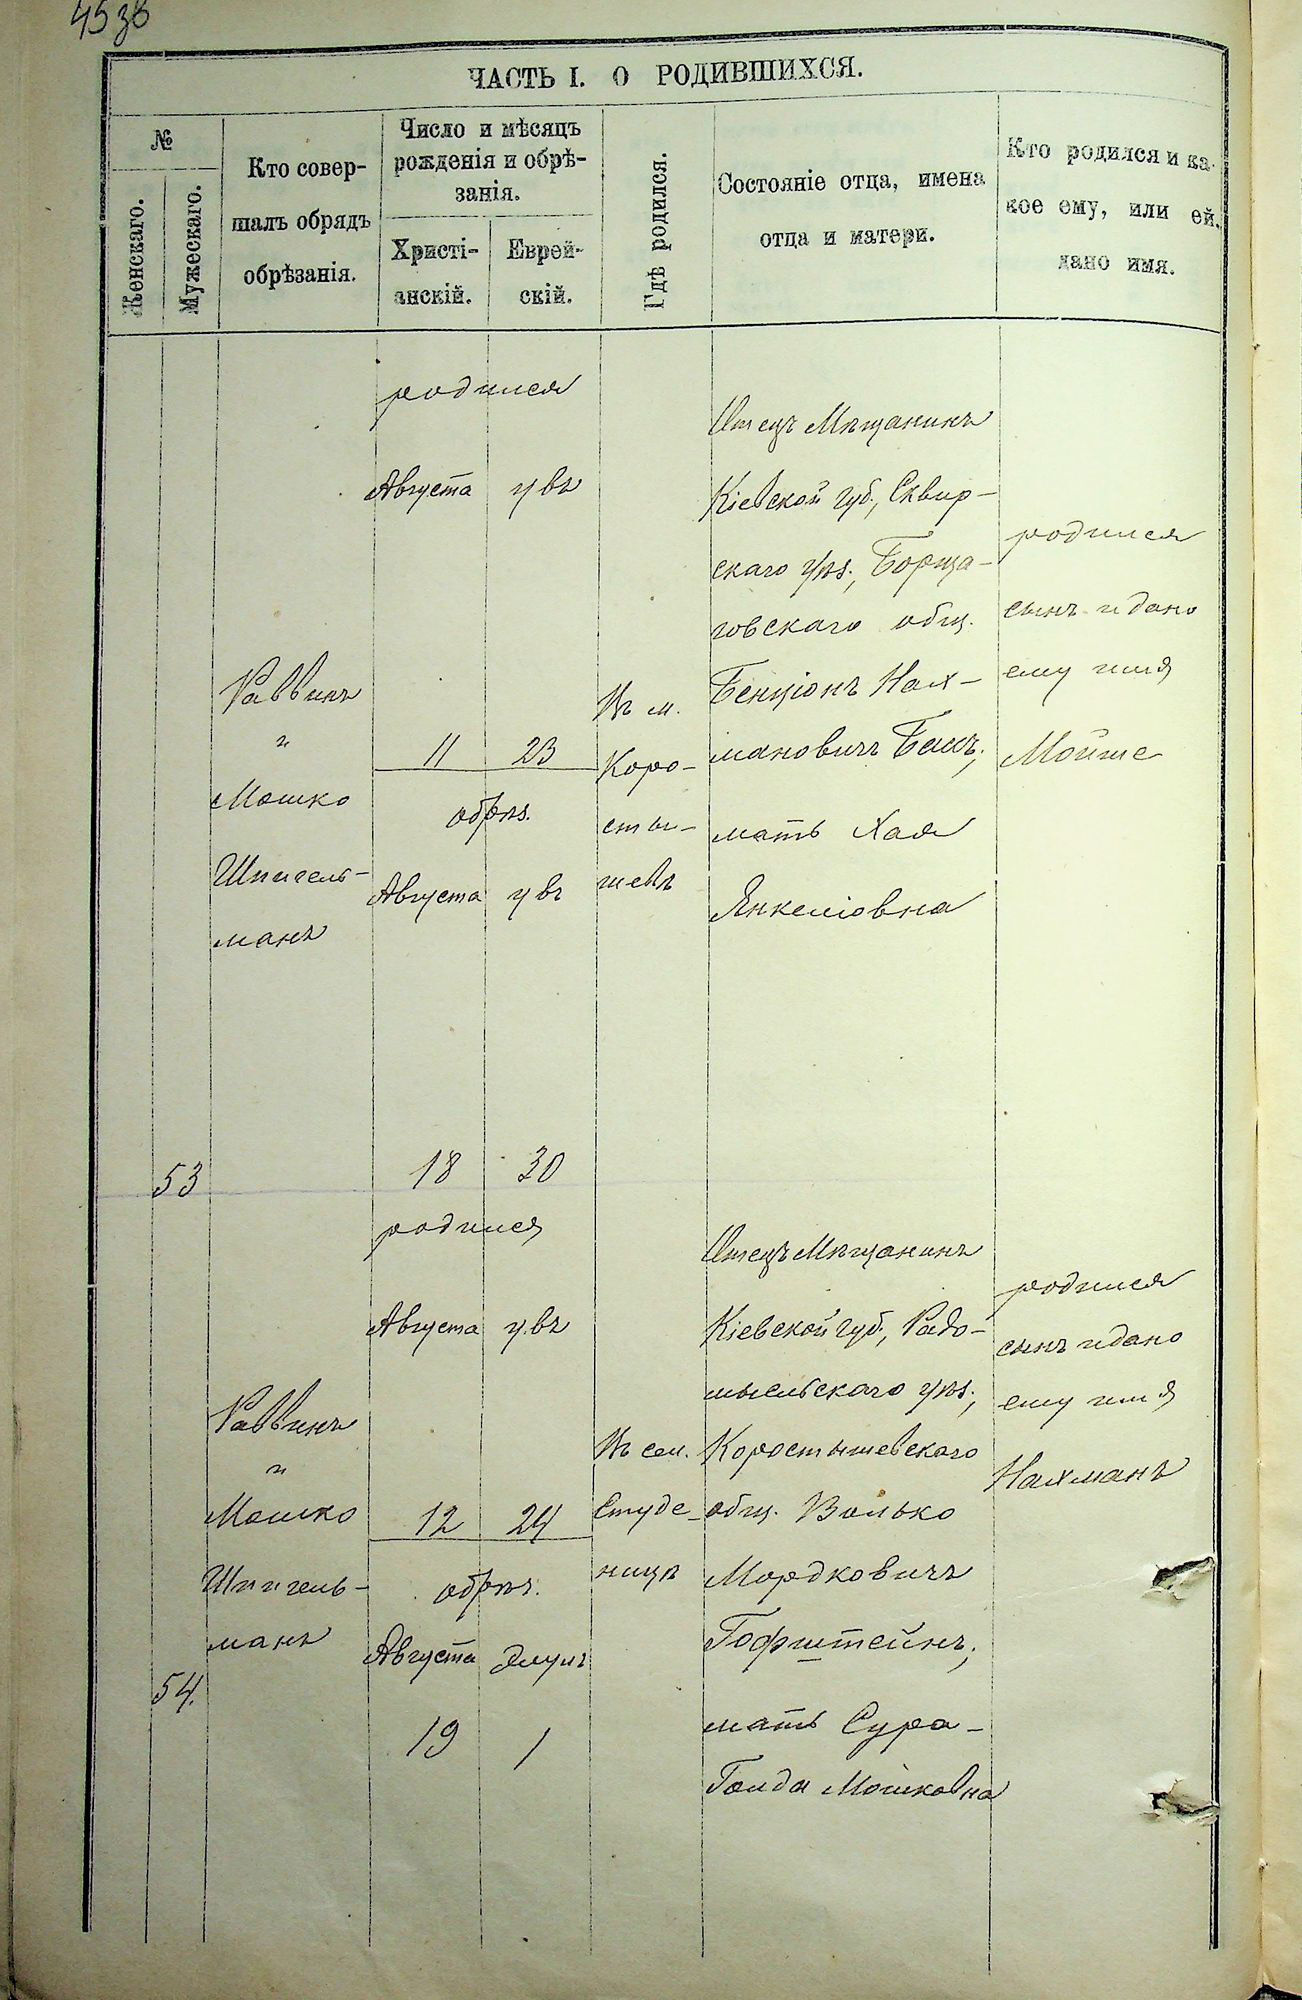 45 об
ЧАСТЬ I. О РОДИВШИХСЯ.
№
Женскаго.
Мужескаго.
Кто совер-
шалъ обрядъ
обрѣзанія.
Число и мѣсяцъ
рожденія и обрѣ-
занія.
Христі-
анскій.
Еврей-
скій.
Гдѣ родился.
Состояніе отца, имена
отца и матери.
Кто родился и ка-
кое ему, или ей,
дано имя.
53
Раввинъ
и
Мошко
Шпигель-
манъ
родился
Августа увъ
11 23
обрѣз.
Августа увъ
18 30
Въ м.
Коро-
сты-
шевѣ
Отецъ Мѣщанинъ
Кіевской губ., Сквир-
скаго уѣз., Борща-
говскаго общ.
Бенціонъ Нах-
мановичъ Бекъ,
мать Хая
Янкеліовна
родился
сынъ и дано
ему имя
Мойше
54.
Раввинъ
и
Мошко
Шпигель-
манъ
родился
Августа увъ
12 24
обрѣз.
Августа Элулъ
19 1
Въ сел.
Студе-
ницѣ
Отецъ Мѣщанинъ
Кіевской губ., Радо-
мысльскаго уѣз.,
Коростышевскаго
общ. Волько
Мордковичъ
Гофштейнъ,
мать Сура-
Голда Мошковна
родился
сынъ и дано
ему имя
Нахманъ